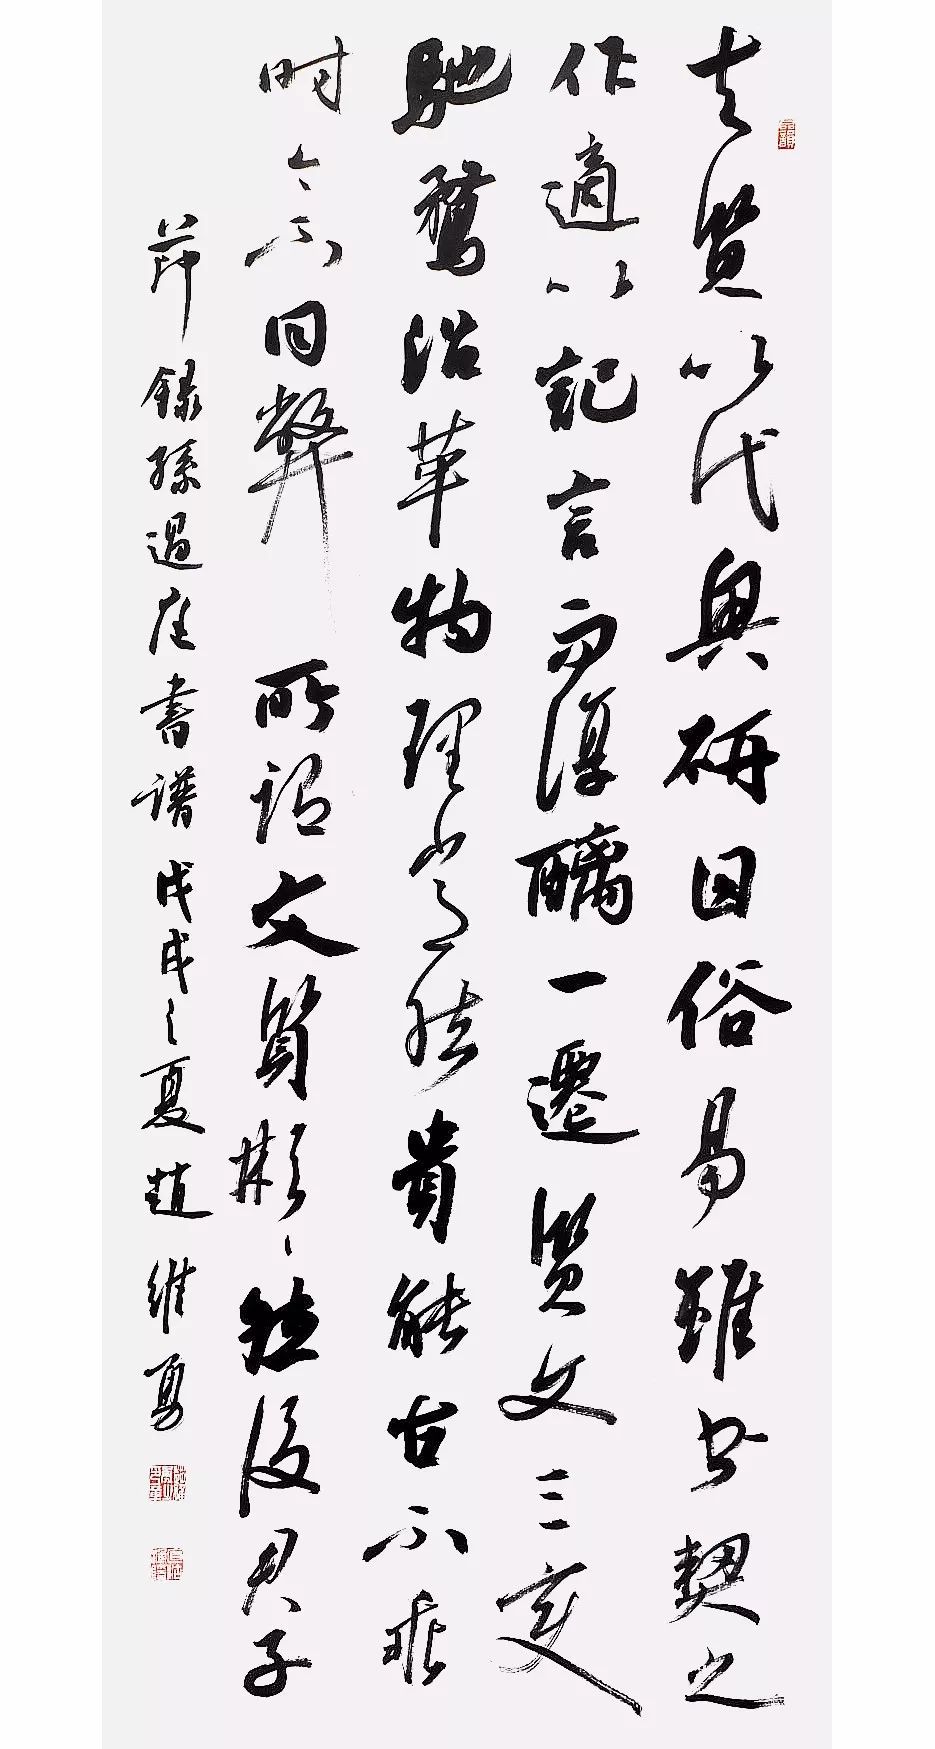 夫質以代興研因俗易雖书契之
作適以記言而淳醨一遷質文三变
馳騖沿革物理常然貴能古不乖
时今不同弊所謂文質彬〻然後君子
節錄孫過庭書譜戊戌之夏趙維勇